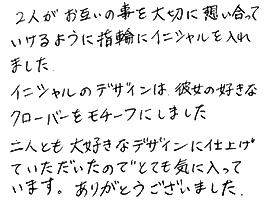 2人がお互いの事を大切に想い合って
いけるように指輪にイニシャルを入れ
ました.
イニシャルのデザインは、彼女の好きな
クローバーをモチーフにしました
二人とも大好きなデザインに仕上げ
ていただいたのでとても気に入って
います。ありがとうございました.